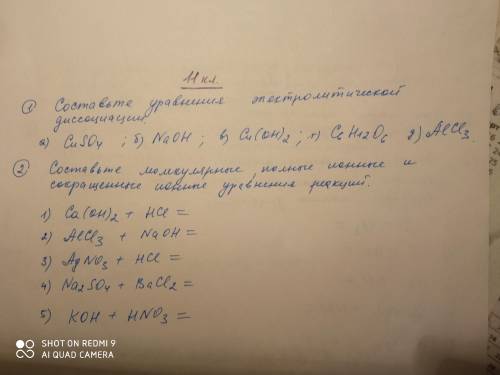 11 кл.
① Составьте уравнения электролитической
диссоциации
а) CuSO4 ; б) NaOH ; в) Cu(OH)2 ; г) C6H12O6 д) AlCl3.
② Составьте молекулярные, полные ионные и
сокращенные ионные уравнения реакций.
1) Ca(OH)2 + HCl =
2) AlCl3 + NaOH =
3) AgNO3 + HCl =
4) Na2SO4 + BaCl2 =
5) KOH + HNO3 =
SHOT ON REDMI 9
AI QUAD CAMERA